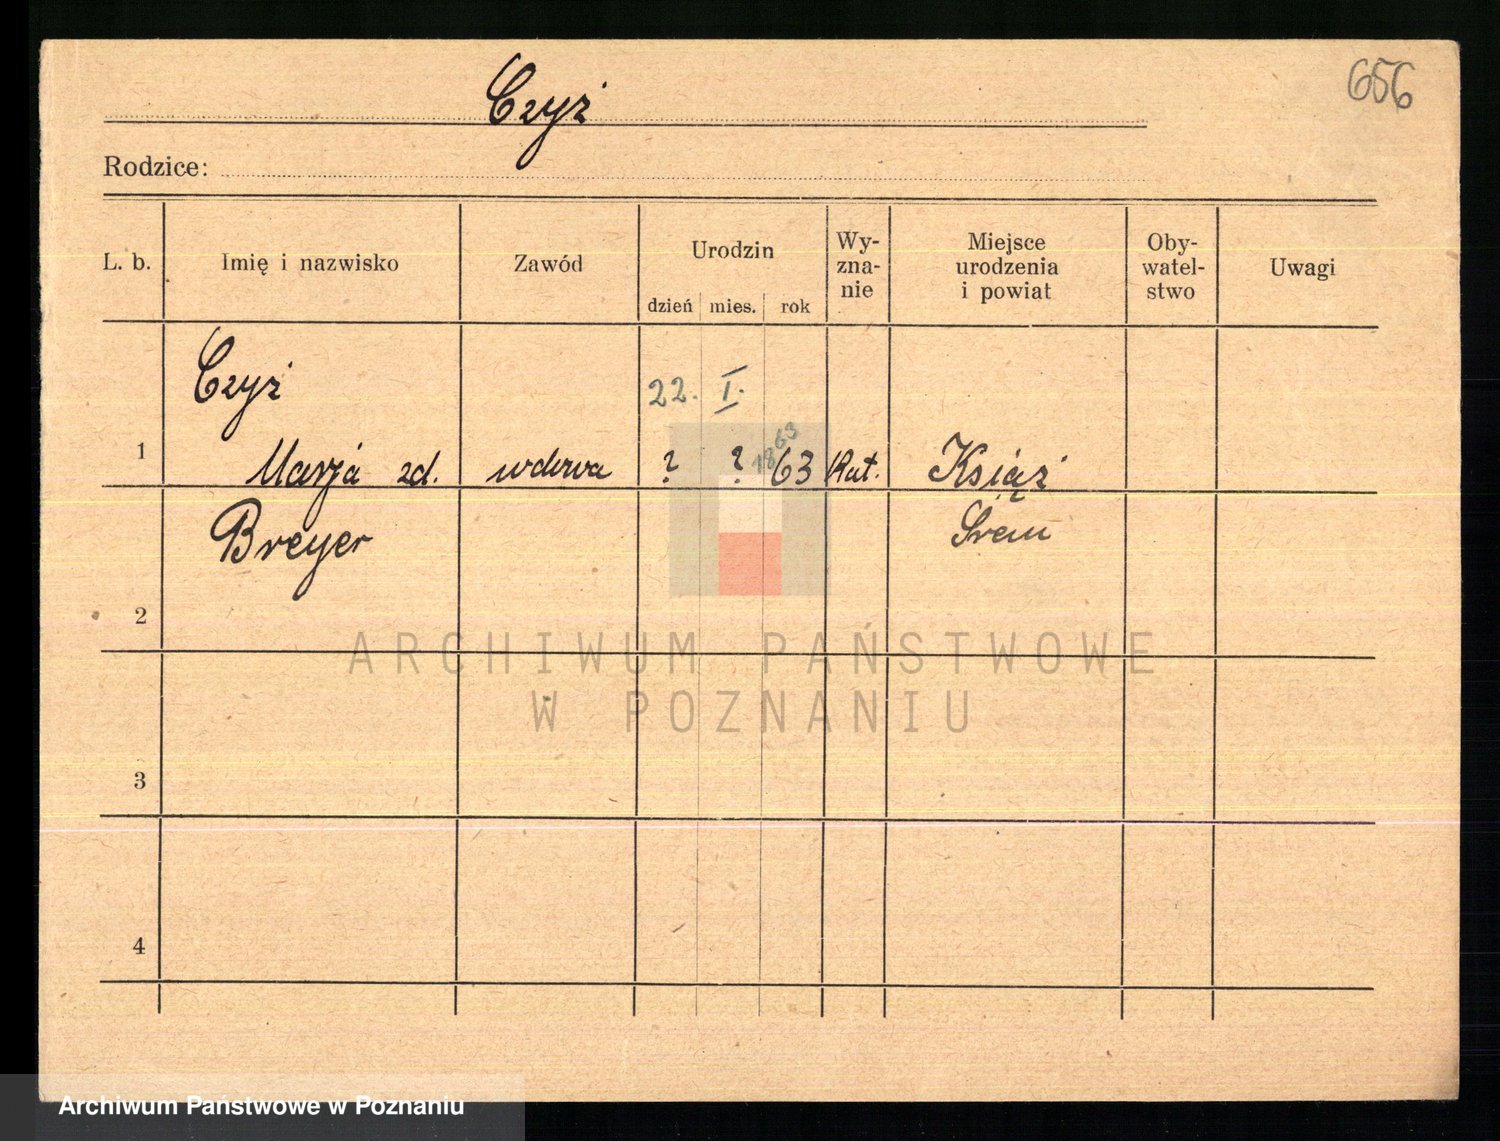 656
Czyż
Rodzice:
L. b. Imię i nazwisko Zawód Urodzin dzień mies. rok Wy-zna-nie Miejsce urodzenia i powiat Oby-watel-stwo Uwagi
Czyż 22. I.
63
1 Marja zd. wdowa ? ? 1863 Kat. Książ
Breyer Śrem
2
ARCHIWUM PAŃSTWOWE
W POZNANIU
3
4
Archiwum Państwowe w Poznaniu